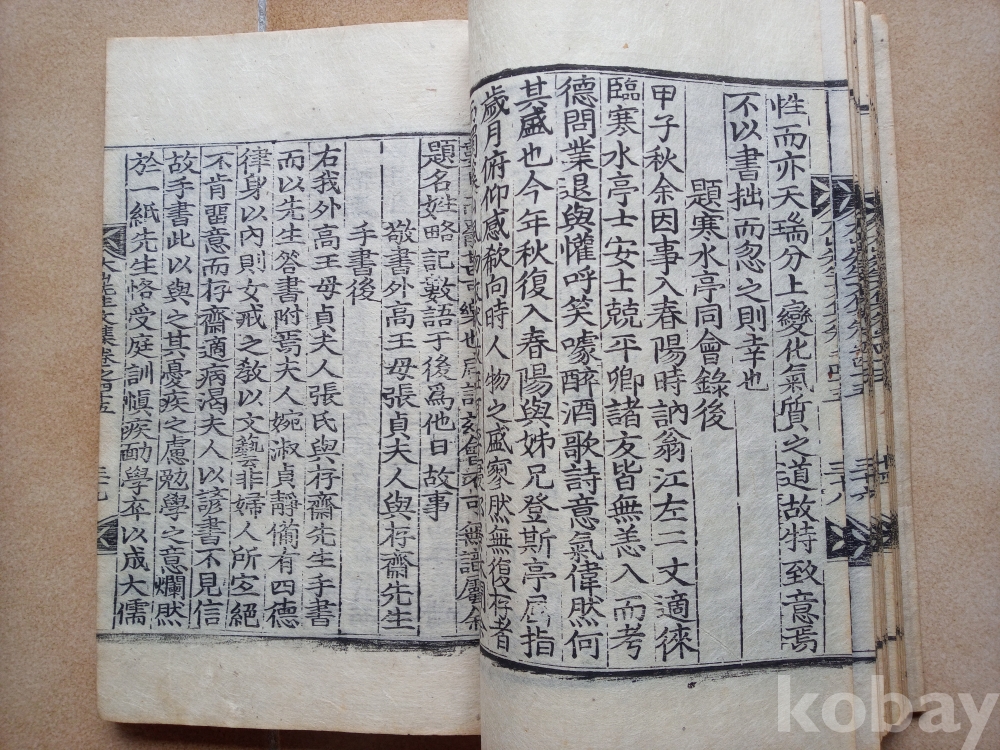 性而亦天瑞分上變化氣質之道故特致意焉
不以書拙而忽之則幸也
題寒水亭同會錄後
甲子秋余因事入春陽時訥翁江左二丈適徠
臨寒水亭士安士兢平卿諸友皆無恙入而考
德問業退與懽呼笑噱醉酒歌詩意氣偉然何
其盛也今年秋復入春陽與姊兄登斯亭屈指
歲月俯仰感欷向時人物之盛寥然無復存者
題名姓略記數語于後爲他日故事
敬書外高王母張貞夫人與存齋先生
手書後
右我外高王母貞夫人張氏與存齋先生手書
而以先生答書附焉夫人婉淑貞靜備有四德
律身以內則女戒之敎以文藝非婦人所宜絕
不肯留意而存齋適病渴夫人以諺書不見信
故手書此以與之其憂疾之慮勉學之意爛然
於一紙先生恪受庭訓愼疾劬學卒以成大儒
三十八
kobay